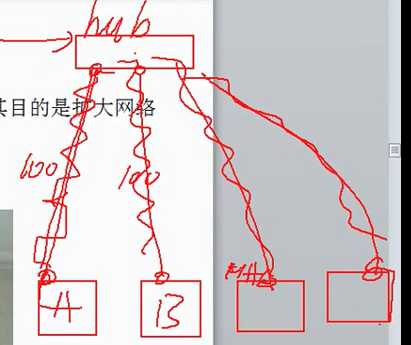 hub
其目的是扩大网络
100
100
A
B